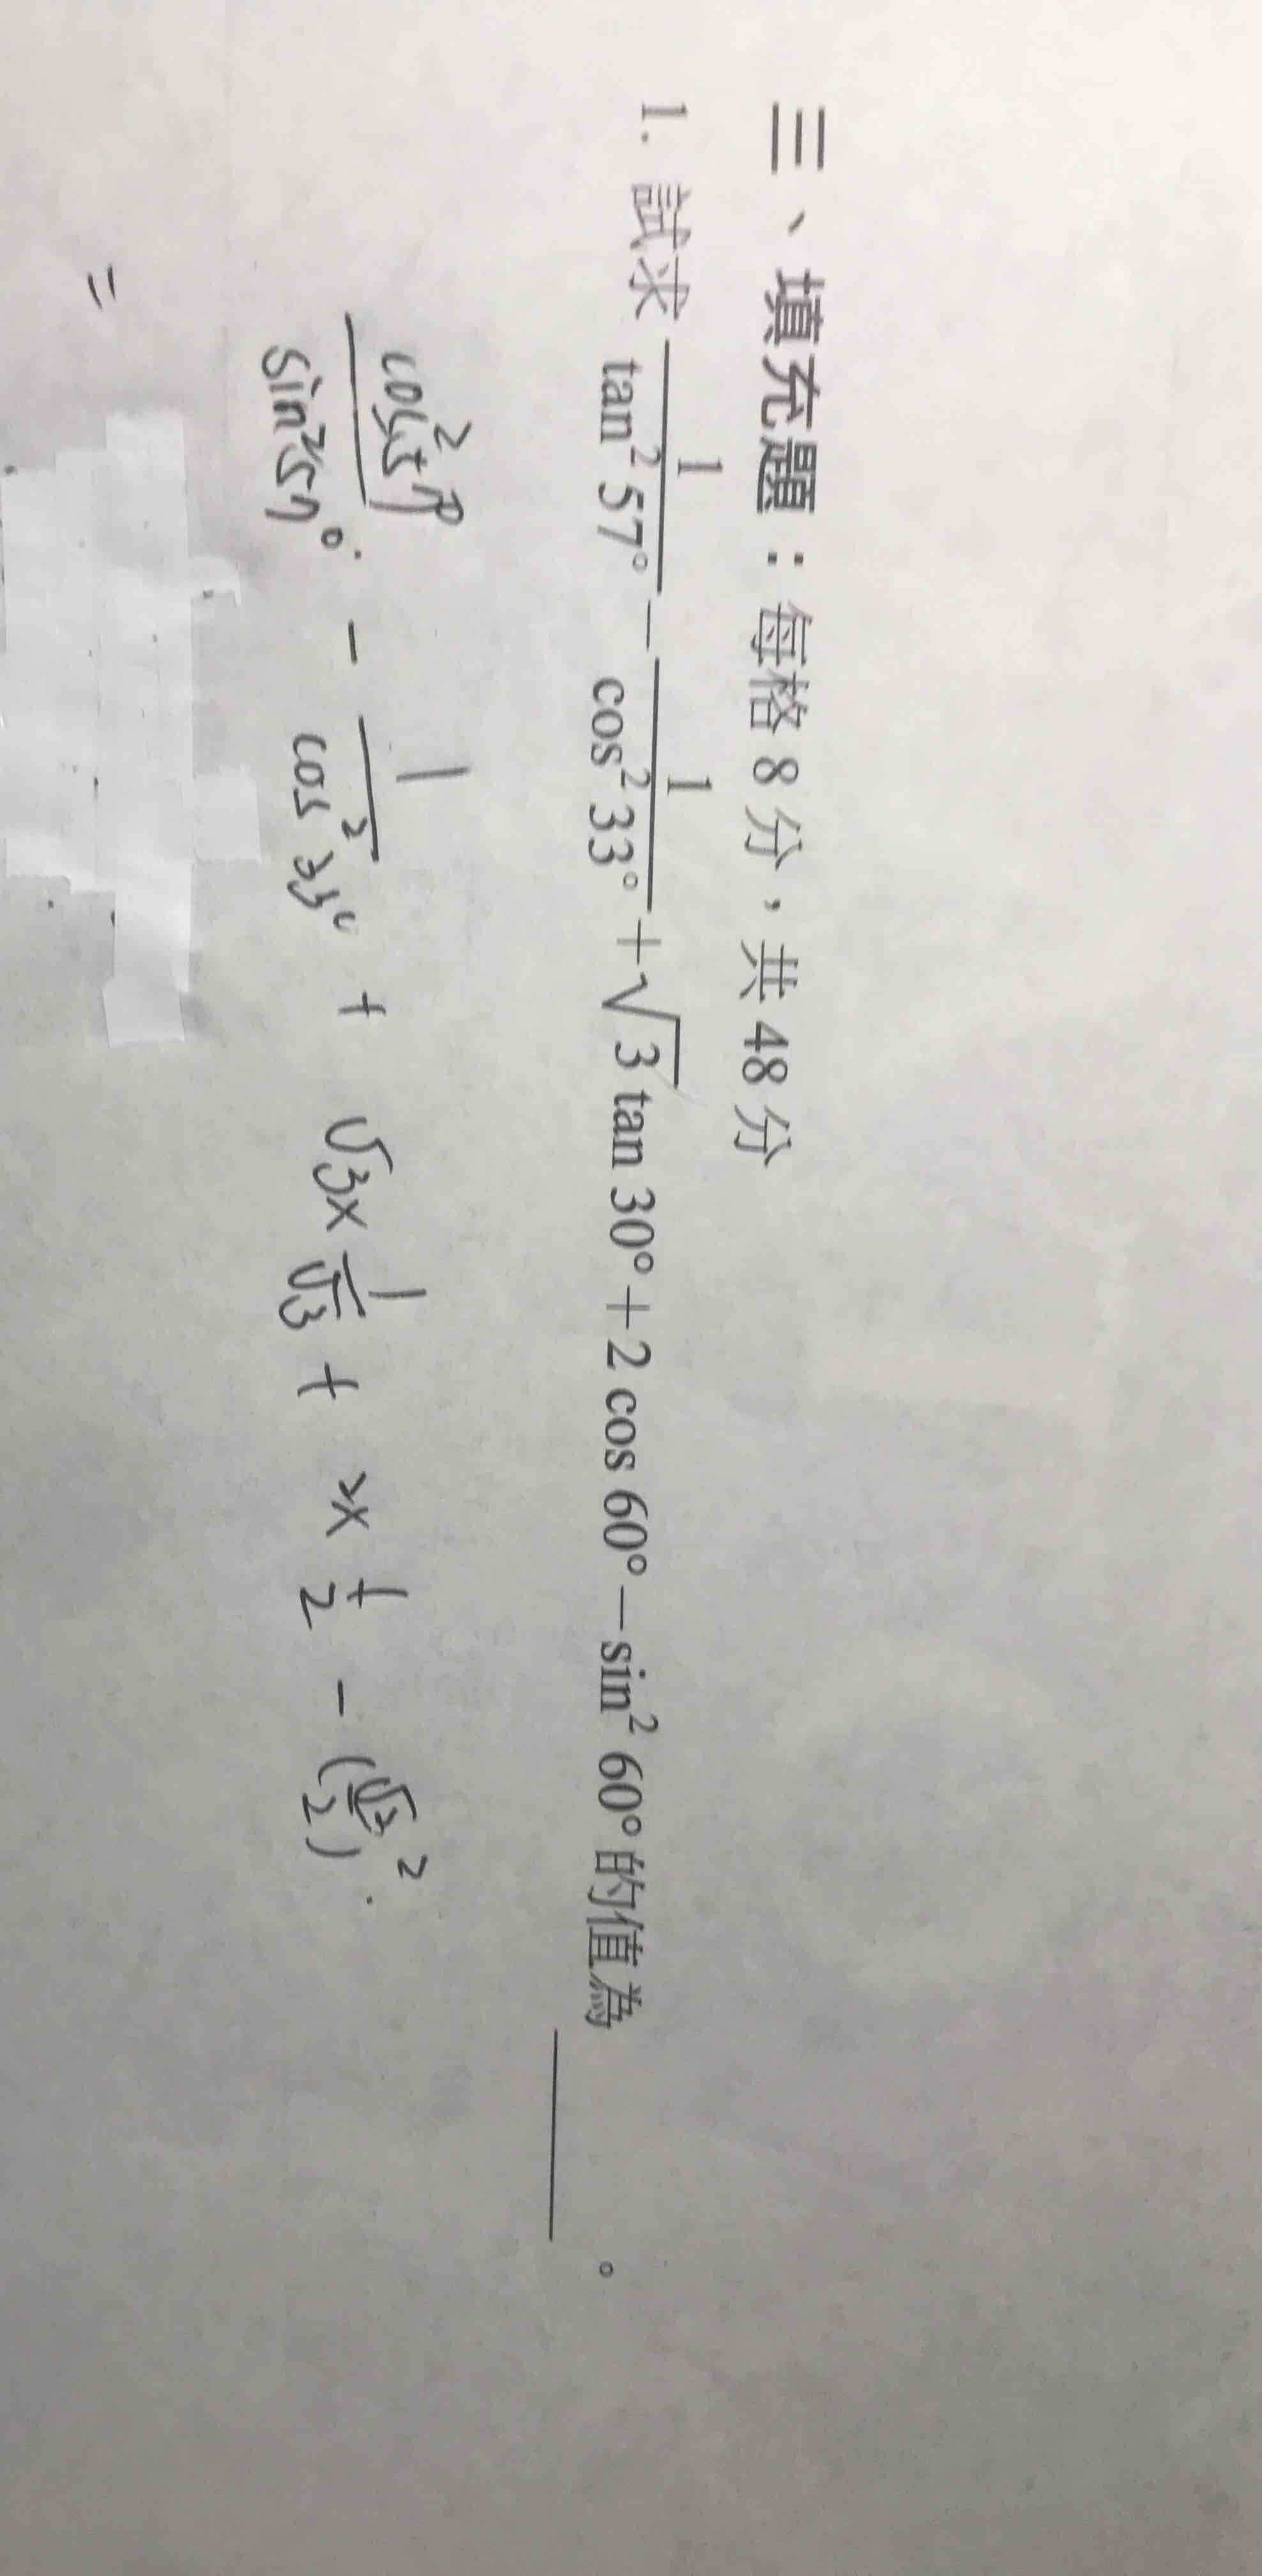 三、填充題：每格 8 分，共 48 分
1. 試求 1/tan² 57° − 1/cos² 33° + √3 tan 30° + 2 cos 60° − sin² 60° 的值為 ______ 。
cos²57°/sin²57° − 1/cos²33° + √3 × 1/√3 + 2 × 1/2 − (√3/2)²
=